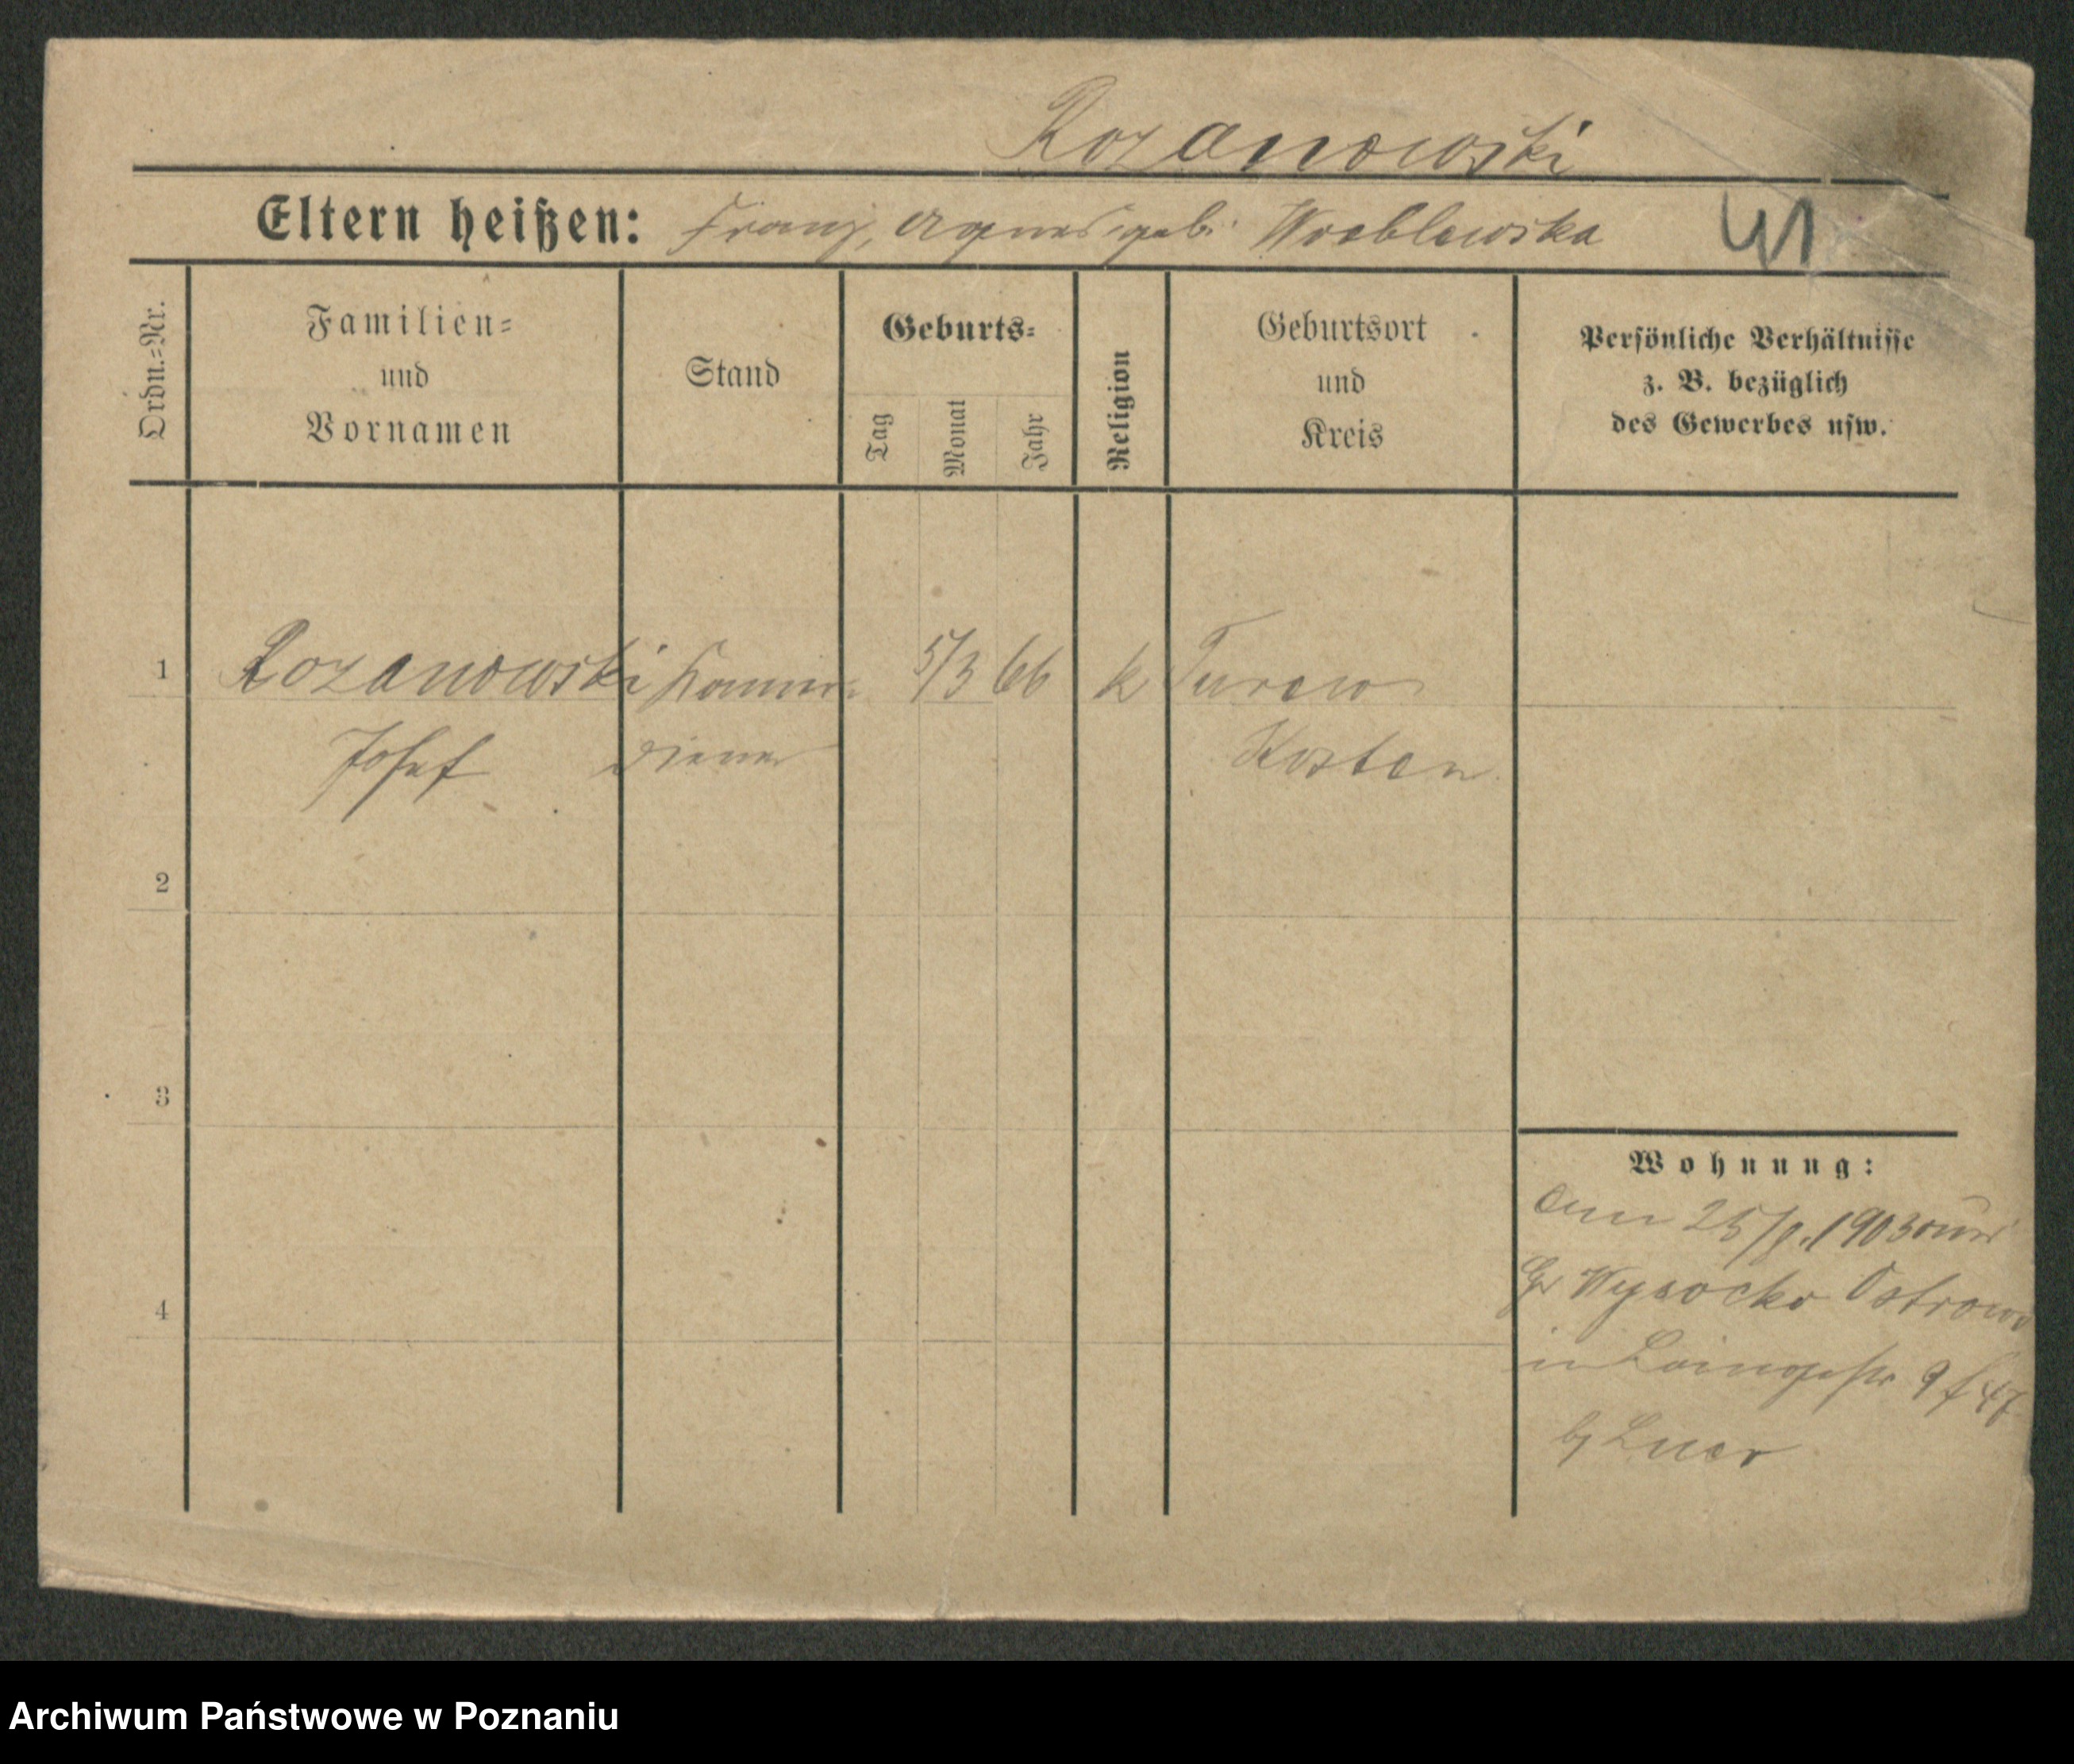 Rozanowski
Eltern heißen: Franz, Agnes geb. Wroblewska
41
Ordn.=Nr.
Familien=
und
Vornamen
Stand
Geburts=
Tag
Monat
Jahr
Religion
Geburtsort
und
Kreis
Persönliche Verhältnisse
z. B. bezüglich
des Gewerbes usw.
1 Rozanowski Kammer= 5/3 66 k Turew
Josef diener Kosten
2
3
4
Wohnung:
25/9.1903 aus
Gr Wysocko Ostrowo
in 9 47
b/
Archiwum Państwowe w Poznaniu